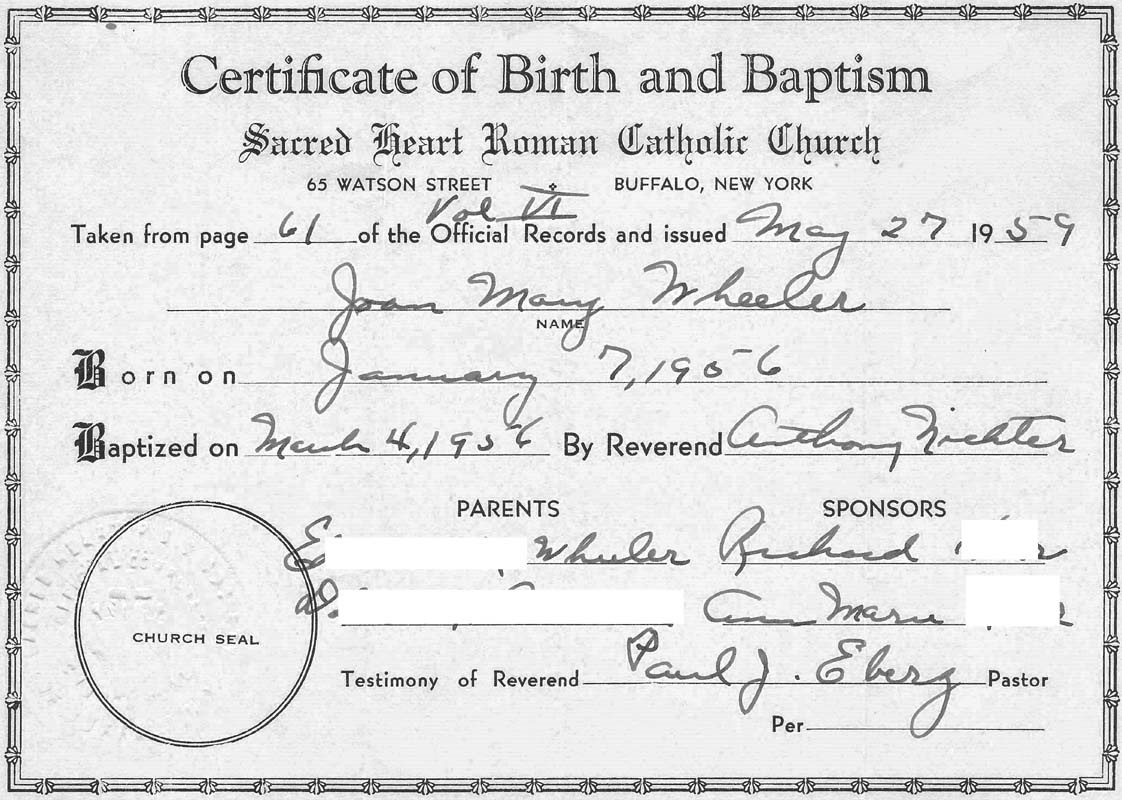 Certificate of Birth and Baptism
Sacred Heart Roman Catholic Church
65 WATSON STREET BUFFALO, NEW YORK
Vol VI
Taken from page 61 of the Official Records and issued May 27 1959
Joan Mary Wheeler
NAME
Born on January 7, 1956
Baptized on March 4, 1956 By Reverend Anthony Nichter
PARENTS SPONSORS
Wheeler Richard
Ann Marie
CHURCH SEAL
Testimony of Reverend Paul J. Eberz Pastor
Per